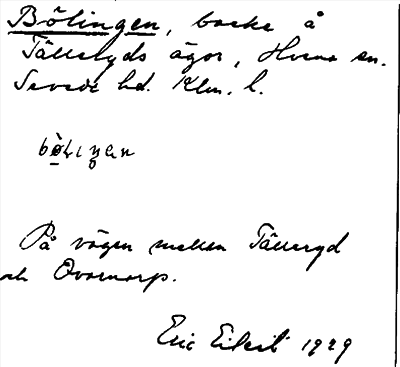 Bölingen, backe å
Tälleryds ägor, Hvena sn.
Sevede hd. Klm. l.
På vägen mellan Tälleryd
och Ovarnarp.
Eric Elleit 1929